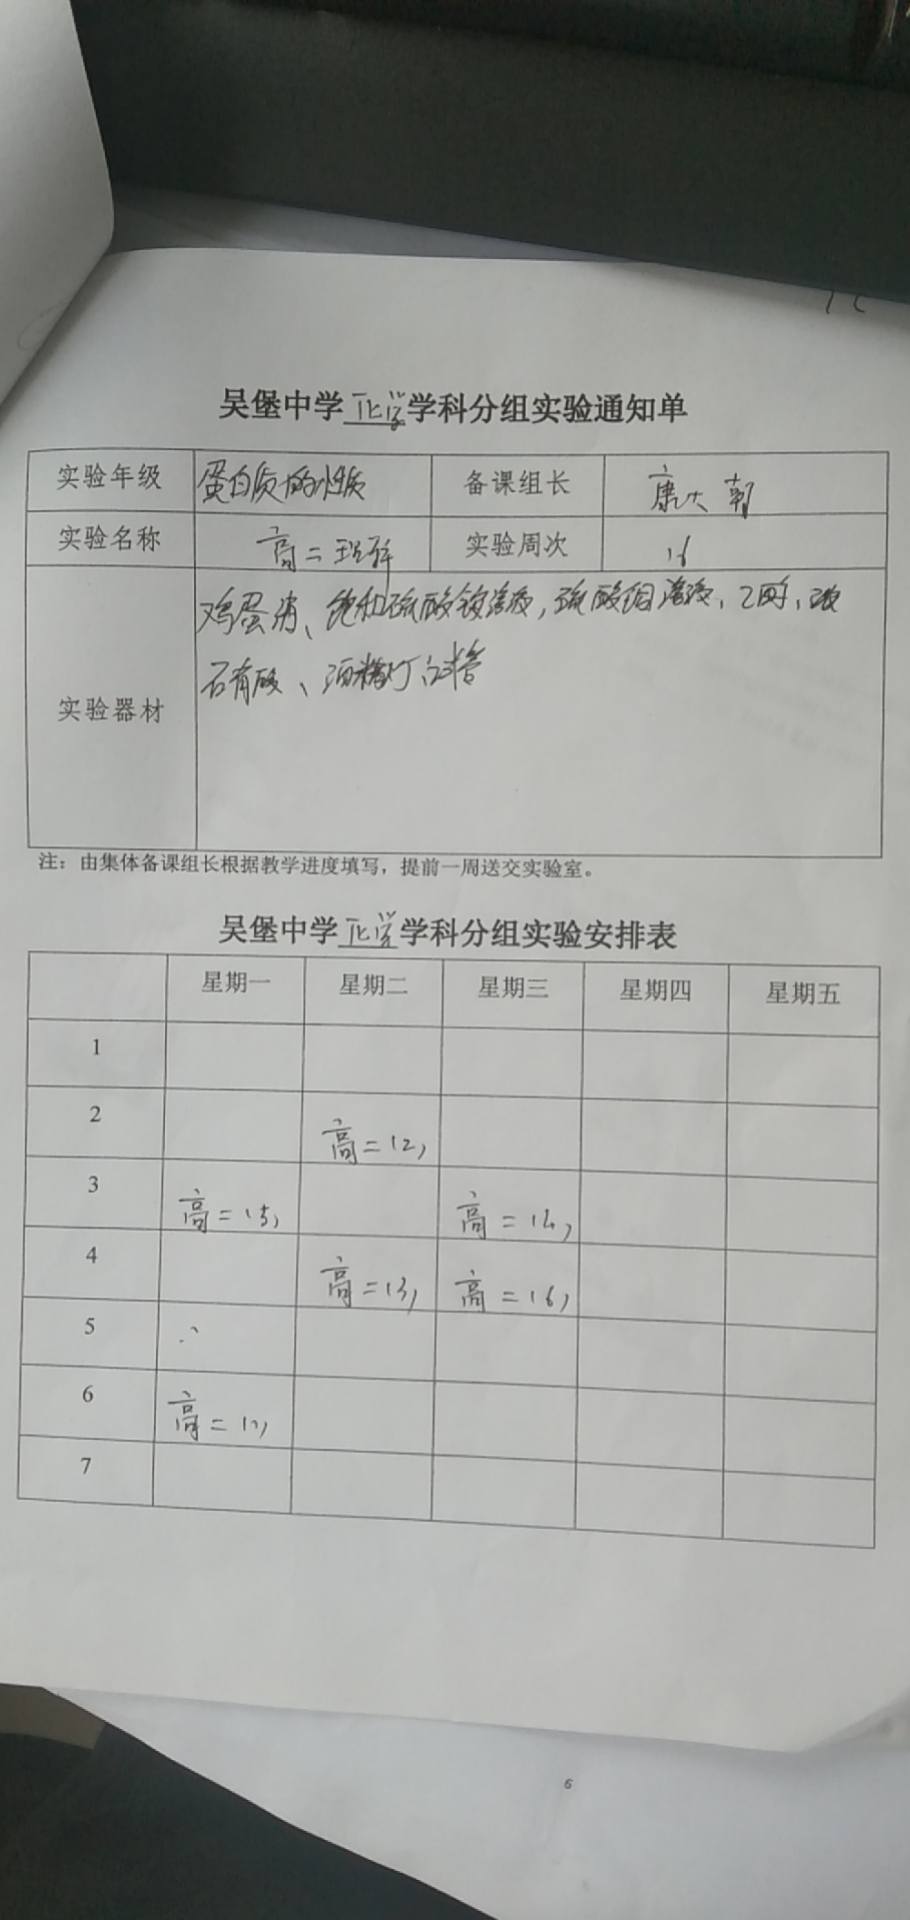 吴堡中学化学学科分组实验通知单
实验年级 蛋白质的性质 备课组长 康大朝
实验名称 高二理科 实验周次 16
实验器材 鸡蛋清、饱和硫酸铵溶液,硫酸铜溶液、乙醇、浓
石肖酸、酒精灯、试管
注:由集体备课组长根据教学进度填写,提前一周送交实验室。
吴堡中学化学学科分组实验安排表
星期一 星期二 星期三 星期四 星期五
1
2 高二12,
3 高二15, 高二14,
4 高二13, 高二16,
5
6 高二11,
7
6